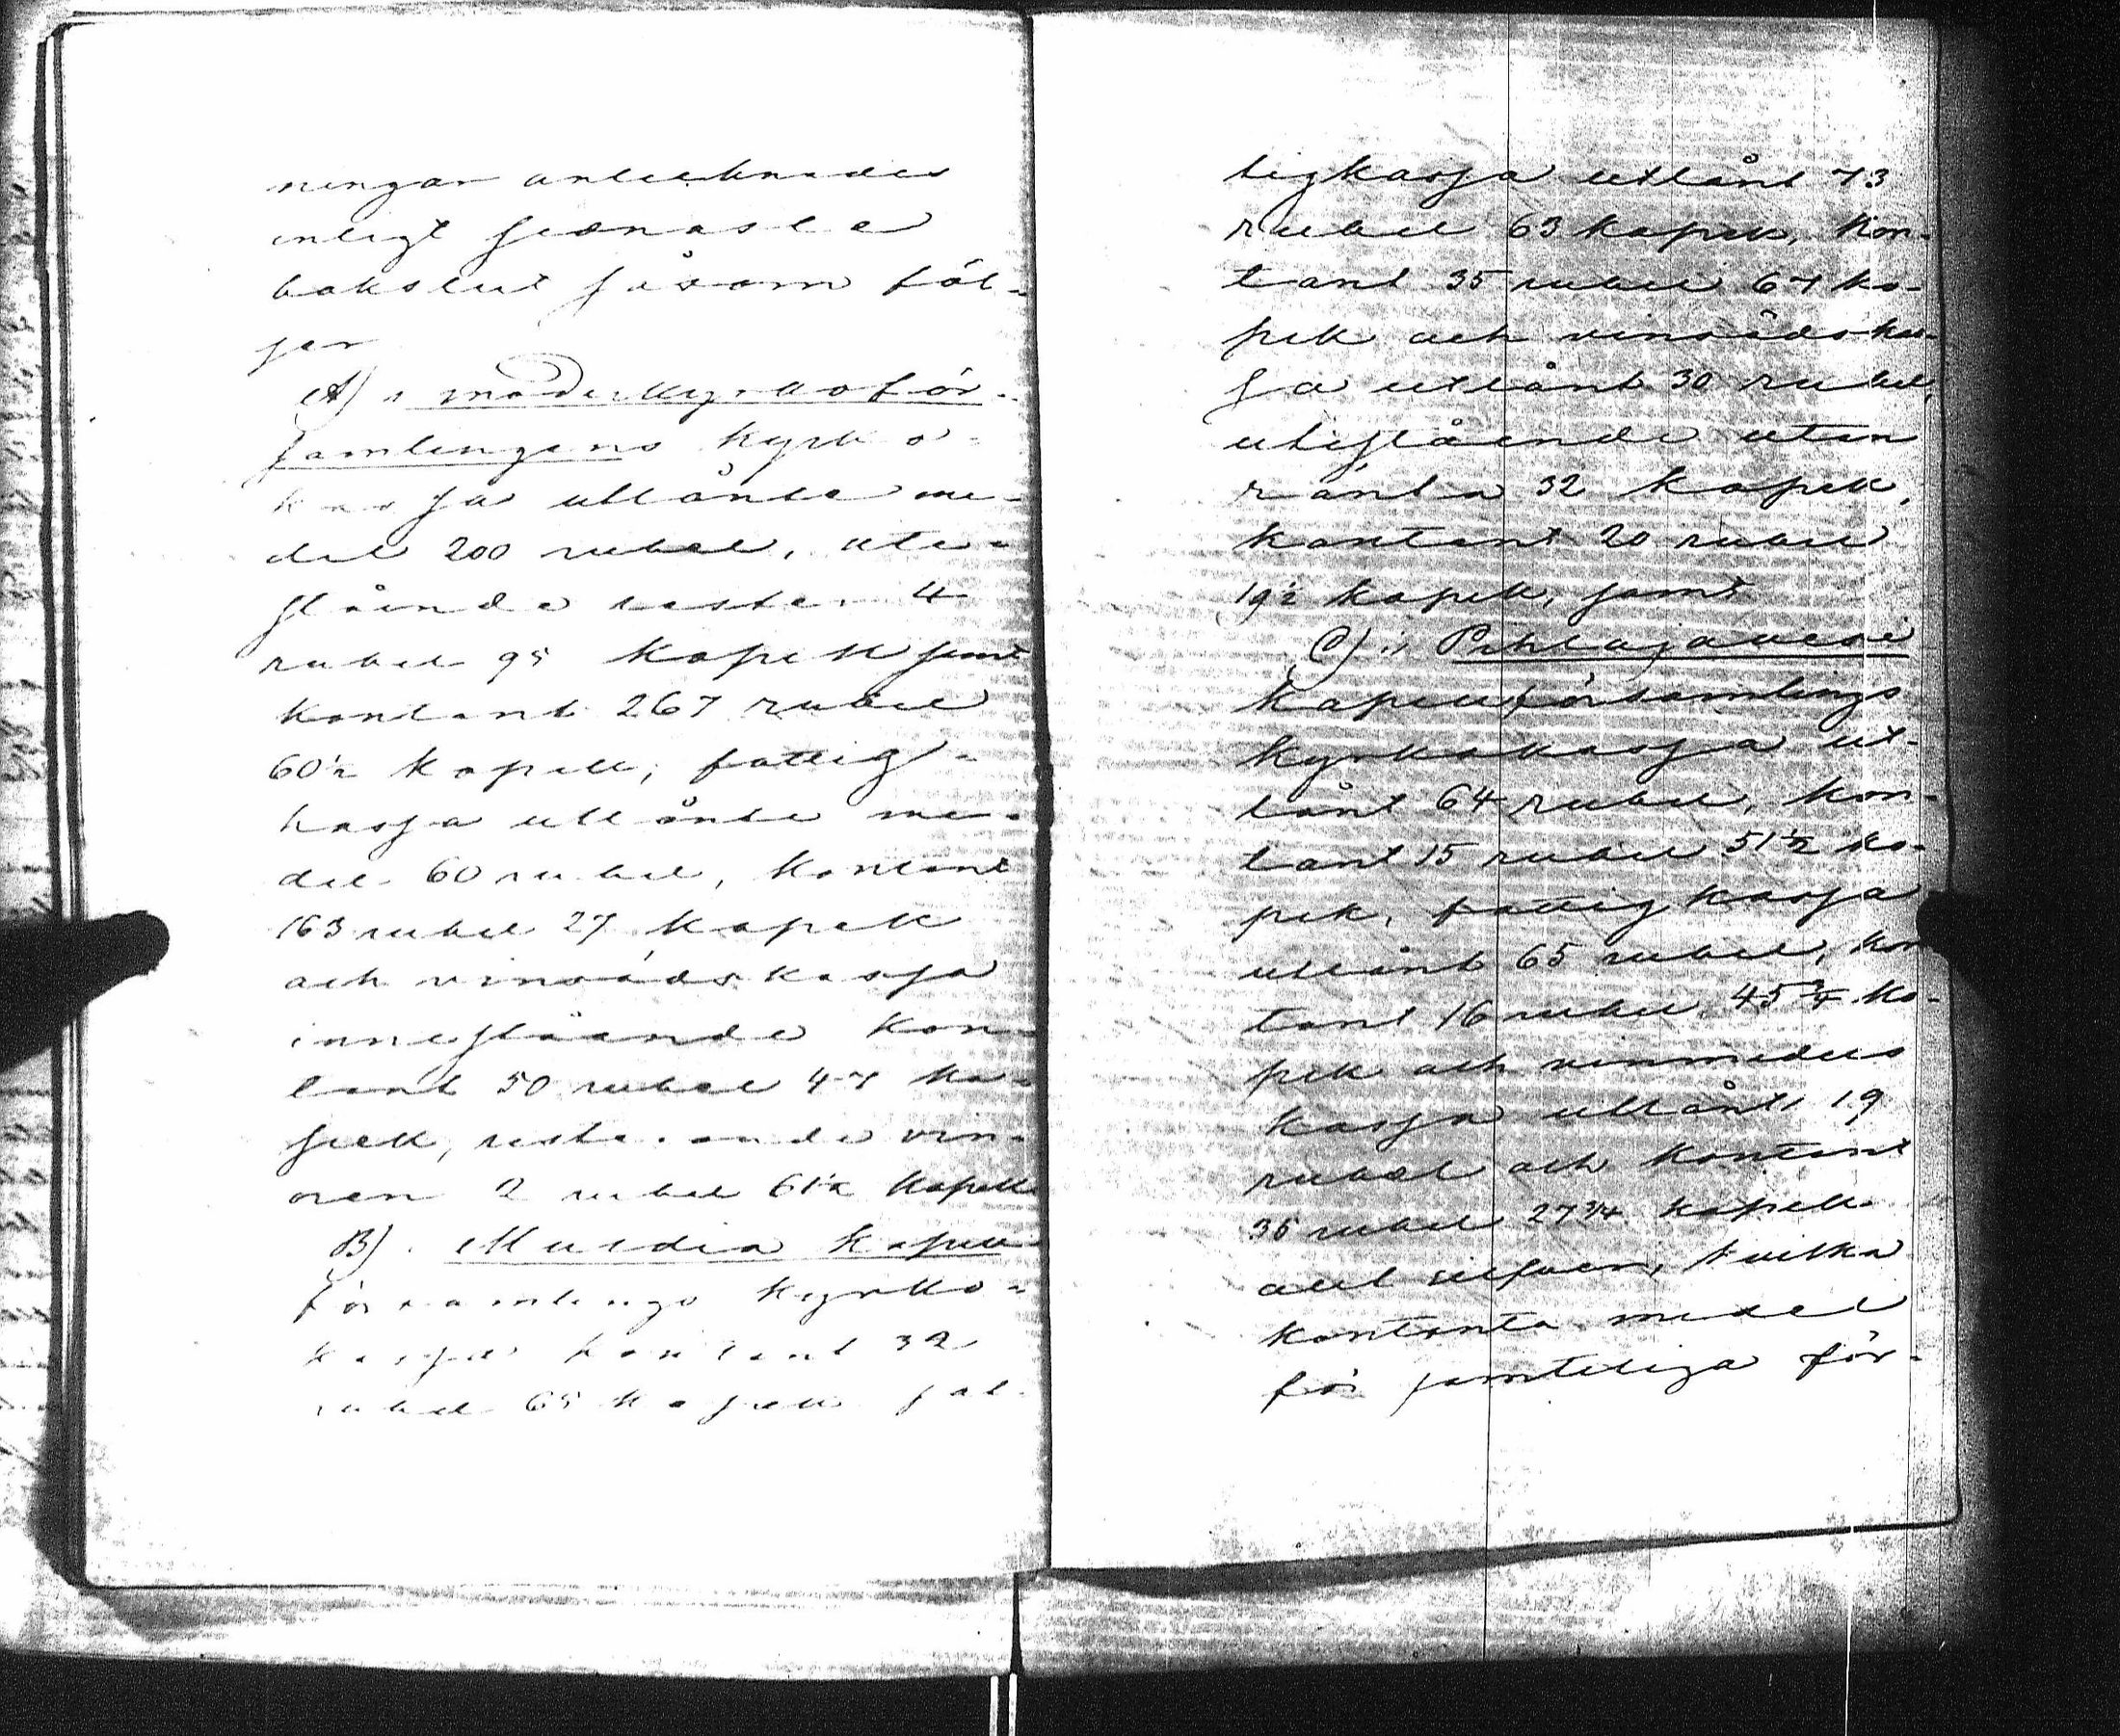 ningar antecknades
enligt senaste
bokslut såsom föl-
jer
A) i moderkyrkoför-
samlingens kyrko-
kassa utlånte me-
del 200 rubel, ute-
stående rester 4
rubel 95 kopek samt
kontant 267 rubel
60½ kopek, fattig-
kassa utlånte me-
del 60 rubel, kontant
163 rubel 27 kopek
och vinsädskassa
innestående kon-
tant 50 rubel 47 ko-
pek, resterande vin-
ören 2 rubel 61½ kopek
B). Multia kapell
församlings kyrko-
kassa kontant 32
rubel 65 kopek fat-
tigkassa utlånt 73
rubel 63 kopek, kon-
tant 35 rubel 67 ko-
pek och vinsädskas-
sa utlånt 30 rubel,
utestående utan
ränta 32 kopek,
kontant 20 rubel
19½ kopek, samt
C) i Pihlajavesi
kapellförsamlings
kyrkokassa ut-
lånt 64 rubel, kon-
tant 15 rubel 51½ ko-
pek, fattigkassa
utlånt 65 rubel, kon
tant 16 rubel 45¾ ko-
pek och vinmedels
kassa utlånt 19
rubel och kontant
36 rubel 27¾ kopek
allt silfver, hvilka
kontanta medel
för samteliga för-